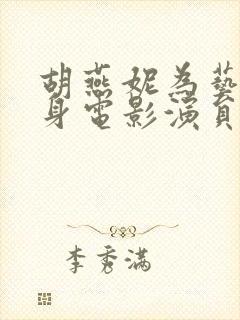 胡燕妮為藝
身電影演員
李秀滿